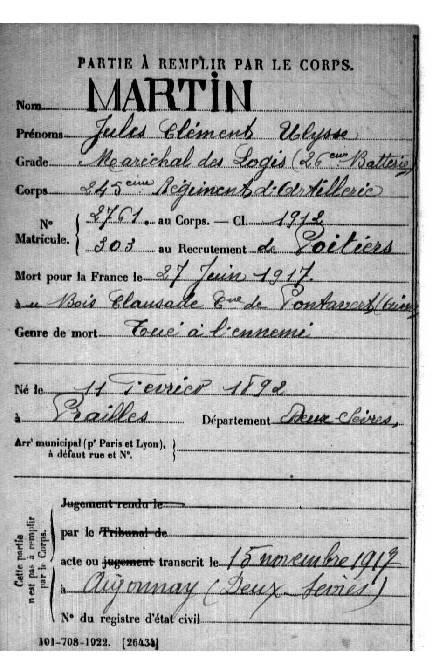 PARTIE À REMPLIR PAR LE CORPS.
Nom MARTIN
Prénoms Jules Clément Ulysse
Grade Maréchal des Logis (26eme Batterie)
Corps 245eme Régiment d'Artillerie
N° Matricule. { 2761. au Corps. — Cl. 1912
303 au Recrutement de Poitiers
Mort pour la France le 27 Juin 1917.
à Bois Clausade Cne de Pontavert (Aisne)
Genre de mort Tué à l'ennemi
Né le 11 Fevrier 1892
à Prailles Département Deux Sèvres.
Arr' municipal (p' Paris et Lyon),
à défaut rue et N°.
Cette partie n'est pas à remplir par le Corps.
Jugement rendu le
par le Tribunal de
acte ou jugement transcrit le 15 novembre 1917
à Aigonnay (Deux-Sèvres)
N° du registre d'état civil
101-708-1922. [26434]